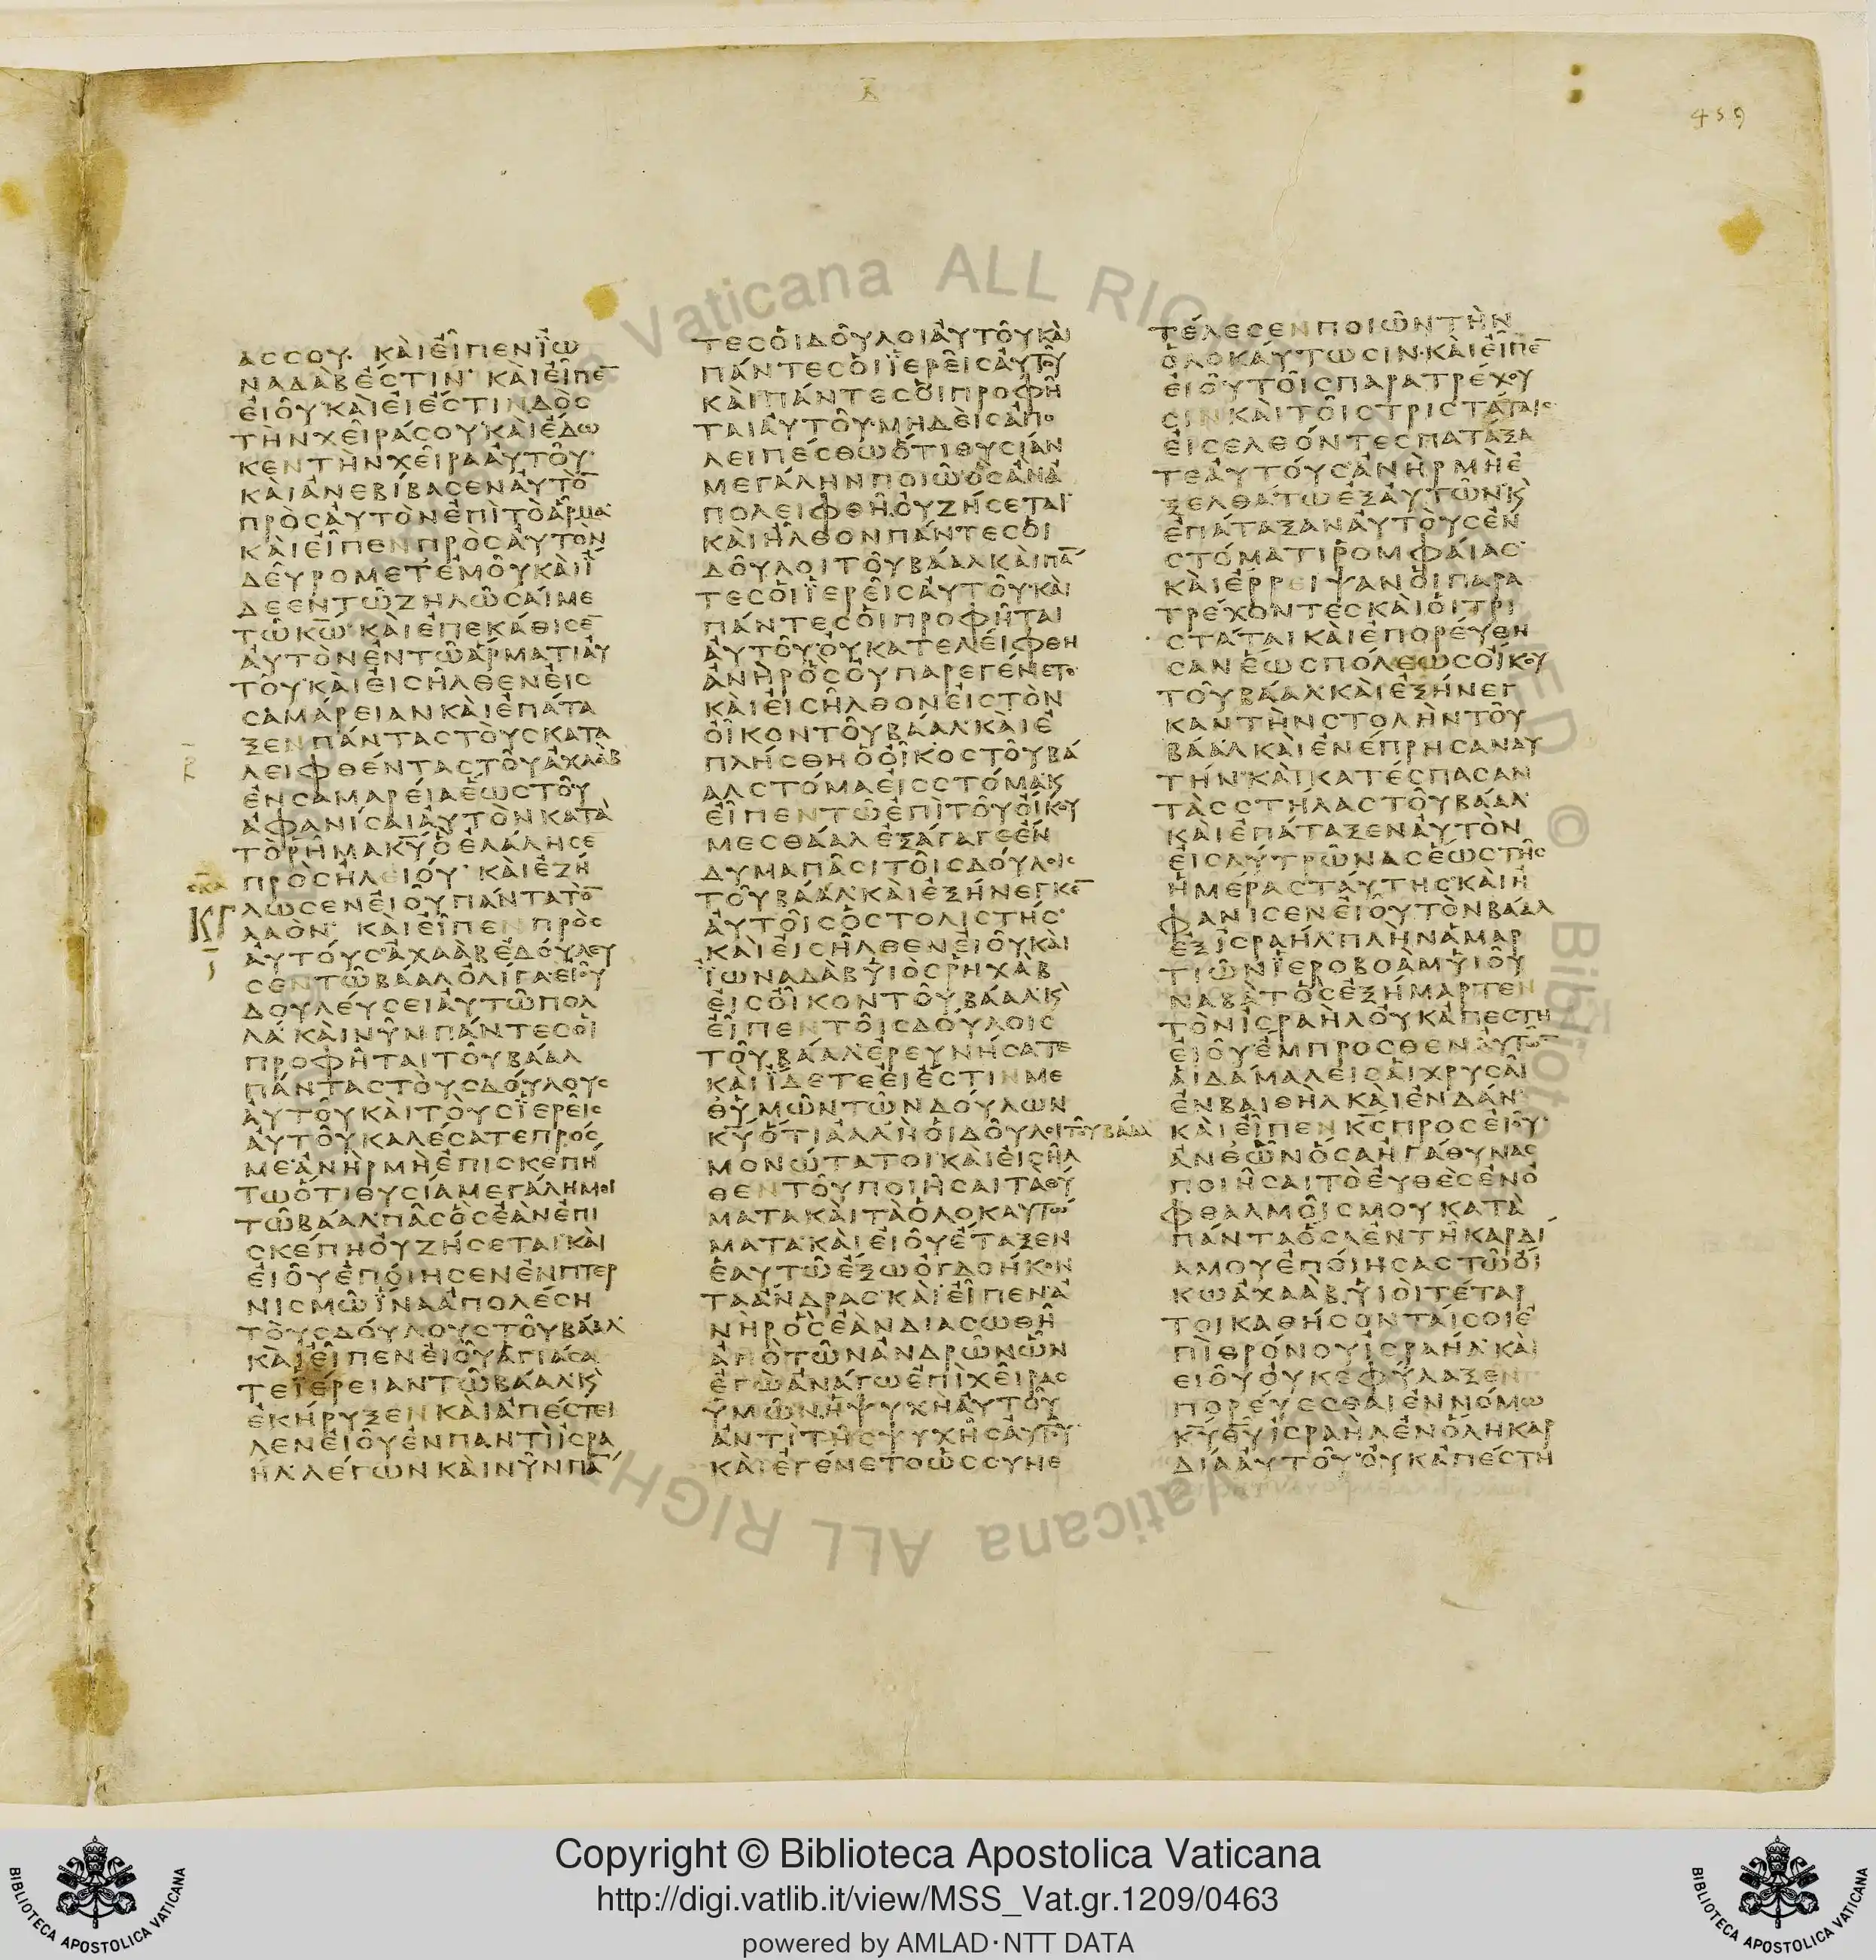 459
ΑϹϹΟΥ· ΚΑΙΕΙΠΕΝΪΩ
ΝΑΔΑΒΕϹΤΙΝ· ΚΑΙΕΙΠΕ̅
ΕΙΟΥ·ΚΑΙΕΙΕϹΤΙΝΔΟϹ
ΤΗΝΧΕΙΡΑϹΟΥ·ΚΑΙΕΔΩ
ΚΕΝΤΗΝΧΕΙΡΑΑΥΤΟΥ·
ΚΑΙΑΝΕΒΙΒΑϹΕΝΑΥΤΟ̅
ΠΡΟϹΑΥΤΟΝΕΠΙΤΟΑΡΜΑ·
ΚΑΙΕΙΠΕΝΠΡΟϹΑΥΤΟΝ
ΔΕΥΡΟΜΕΤΕΜΟΥΚΑΙΪ
ΔΕΕΝΤΩΖΗΛΩϹΑΙΜΕ
ΤΩΚ̅Ω̅· ΚΑΙΕΠΕΚΑΘΙϹΕ̅
ΑΥΤΟΝΕΝΤΩΑΡΜΑΤΙΑΥ
ΤΟΥ·ΚΑΙΕΙϹΗΛΘΕΝΕΙϹ
ϹΑΜΑΡΕΙΑΝΚΑΙΕΠΑΤΑ
ΞΕΝΠΑΝΤΑϹΤΟΥϹΚΑΤΑ
ΛΕΙΦΘΕΝΤΑϹΤΟΥΑΧΑΑΒ
ΕΝϹΑΜΑΡΕΙΑΕΩϹΤΟΥ
ΑΦΑΝΙϹΑΙΑΥΤΟΝΚΑΤΑ
ΤΟΡΗΜΑΚ̅Υ̅ΟΕΛΑΛΗϹΕ
ΠΡΟϹΗΛΕΙΟΥ· ΚΑΙΕΖΗ
ΛΩϹΕΝΕΙΟΥΠΑΝΤΑΤΟ̅
ΛΑΟΝ· ΚΑΙΕΙΠΕΝΠΡΟϹ
ΑΥΤΟΥϹ·ΑΧΑΑΒΕΔΟΥΛΕΥ
ϹΕΝΤΩΒΑΑΛΟΛΙΓΑΕΙΟΥ
ΔΟΥΛΕΥϹΕΙΑΥΤΩΠΟΛ
ΛΑ·ΚΑΙΝΥΝΠΑΝΤΕϹΟΙ
ΠΡΟΦΗΤΑΙΤΟΥΒΑΑΛ
ΠΑΝΤΑϹΤΟΥϹΔΟΥΛΟΥϹ
ΑΥΤΟΥΚΑΙΤΟΥϹΪΕΡΕΙϹ
ΑΥΤΟΥΚΑΛΕϹΑΤΕΠΡΟϹ
ΜΕ·ΑΝΗΡΜΗΕΠΙϹΚΕΠΗ
ΤΩΟΤΙΘΥϹΙΑΜΕΓΑΛΗΜΟΙ
ΤΩΒΑΑΛ·ΠΑϹΟϹΕΑΝΕΠΙ
ϹΚΕΠΗΟΥΖΗϹΕΤΑΙ·ΚΑΙ
ΕΙΟΥΕΠΟΙΗϹΕΝΕΝΠΤΕΡ
ΝΙϹΜΩΪΝΑΑΠΟΛΕϹΗ
ΤΟΥϹΔΟΥΛΟΥϹΤΟΥΒΑΑΛ
ΚΑΙΕΙΠΕΝΕΙΟΥΑΓΙΑϹΑ
ΤΕΪΕΡΕΙΑΝΤΩΒΑΑΛ·Κ̀
ΕΚΗΡΥΞΕΝΚΑΙΑΠΕϹΤΕΙ
ΛΕΝΕΙΟΥΕΝΠΑΝΤΙΙϹΡΑ
ΗΛ·ΛΕΓΩΝΚΑΙΝΥΝΠΑ̅
ΤΕϹΟΙΔΟΥΛΟΙΑΥΤΟΥΚΑΙ
ΠΑΝΤΕϹΟΙΪΕΡΕΙϹΑΥΤΟΥ
ΚΑΙΠΑΝΤΕϹΟΙΠΡΟΦΗ
ΤΑΙΑΥΤΟΥ·ΜΗΔΕΙϹΑΠΟ
ΛΕΙΠΕϹΘΩΟΤΙΘΥϹΙΑΝ
ΜΕΓΑΛΗΝΠΟΙΩ·ΟϹΑΝΑ
ΠΟΛΕΙΦΘΗ·ΟΥΖΗϹΕΤΑΙ·
ΚΑΙΗΛΘΟΝΠΑΝΤΕϹΟΙ
ΔΟΥΛΟΙΤΟΥΒΑΑΛΚΑΙΠΑ̅
ΤΕϹΟΙΪΕΡΕΙϹΑΥΤΟΥ·ΚΑΙ
ΠΑΝΤΕϹΟΙΠΡΟΦΗΤΑΙ
ΑΥΤΟΥ·ΟΥΚΑΤΕΛΕΙΦΘΗ
ΑΝΗΡΟϹΟΥΠΑΡΕΓΕΝΕΤΟ·
ΚΑΙΕΙϹΗΛΘΟΝΕΙϹΤΟΝ
ΟΙΚΟΝΤΟΥΒΑΑΛ·ΚΑΙΕ
ΠΛΗϹΘΗΟΟΙΚΟϹΤΟΥΒΑ
ΑΛϹΤΟΜΑΕΙϹϹΤΟΜΑ·Κ
ΕΙΠΕΝΤΩΕΠΙΤΟΥΟΙΚΟΥ
ΜΕϹΘΑΑΛΕΞΑΓΑΓΕΕΝ
ΔΥΜΑΠΑϹΙΤΟΙϹΔΟΥΛΟΙϹ
ΤΟΥΒΑΑΛ·ΚΑΙΕΞΗΝΕΓΚΕ̅
ΑΥΤΟΙϹΟϹΤΟΛΙϹΤΗϹ·
ΚΑΙΕΙϹΗΛΘΕΝΕΙΟΥΚΑΙ
ΪΩΝΑΔΑΒΥΙΟϹΡΗΧΑΒ
ΕΙϹΟΙΚΟΝΤΟΥΒΑΑΛ·Κ̀
ΕΙΠΕΝΤΟΙϹΔΟΥΛΟΙϹ
ΤΟΥΒΑΑΛ·ΕΡΕΥΝΗϹΑΤΕ
ΚΑΙΪΔΕΤΕΕΙΕϹΤΙΝΜΕ
ΘΥΜΩΝΤΩΝΔΟΥΛΩΝ
Κ̅Υ̅ΟΤΙΑΛΛΗΟΙΔΟΥΛΟΙΤΟΥΒΑΑΛ
ΜΟΝΩΤΑΤΟΙ·ΚΑΙΕΙϹΗΛ
ΘΕΝΤΟΥΠΟΙΗϹΑΙΤΑΘΥ
ΜΑΤΑΚΑΙΤΑΟΛΟΚΑΥΤΩ
ΜΑΤΑ·ΚΑΙΕΙΟΥΕΤΑΞΕΝ
ΕΑΥΤΩΕΞΩΟΓΔΟΗΚΟΝ
ΤΑΑΝΔΡΑϹ·ΚΑΙΕΙΠΕΝΑ
ΝΗΡΟϹΕΑΝΔΙΑϹΩΘΗ
ΑΠΟΤΩΝΑΝΔΡΩΝΩΝ
ΕΓΩΑΝΑΓΩΕΠΙΧΕΙΡΑϹ
ΥΜΩΝ·ΗΨΥΧΗΑΥΤΟΥ
ΑΝΤΙΤΗϹΨΥΧΗϹΑΥΤΟΥ·
ΚΑΙΕΓΕΝΕΤΟΩϹϹΥΝΕ
ΤΕΛΕϹΕΝΠΟΙΩΝΤΗΝ
ΟΛΟΚΑΥΤΩϹΙΝ·ΚΑΙΕΙΠΕ̅
ΕΙΟΥΤΟΙϹΠΑΡΑΤΡΕΧΟΥ
ϹΙΝΚΑΙΤΟΙϹΤΡΙϹΤΑΤΑΙϹ
ΕΙϹΕΛΘΟΝΤΕϹΠΑΤΑΞΑ
ΤΕΑΥΤΟΥϹΑΝΗΡΜΗΕ
ΞΕΛΘΑΤΩΕΞΑΥΤΩΝ·Κ̀
ΕΠΑΤΑΞΑΝΑΥΤΟΥϹΕΝ
ϹΤΟΜΑΤΙΡΟΜΦΑΙΑϹ·
ΚΑΙΕΡΡΕΙΨΑΝΟΙΠΑΡΑ
ΤΡΕΧΟΝΤΕϹΚΑΙΟΙΤΡΙ
ϹΤΑΤΑΙΚΑΙΕΠΟΡΕΥΘΗ
ϹΑΝΕΩϹΠΟΛΕΩϹΟΙΚΟΥ
ΤΟΥΒΑΑΛ·ΚΑΙΕΞΗΝΕΓ
ΚΑΝΤΗΝϹΤΟΛΗΝΤΟΥ
ΒΑΑΛΚΑΙΕΝΕΠΡΗϹΑΝΑΥ
ΤΗΝ·ΚΑΙΚΑΤΕϹΠΑϹΑΝ
ΤΑϹϹΤΗΛΑϹΤΟΥΒΑΑΛ·
ΚΑΙΕΠΑΤΑΞΕΝΑΥΤΟΝ
ΕΙϹΛΥΤΡΩΝΑϹΕΩϹΤΗϹ
ΗΜΕΡΑϹΤΑΥΤΗϹ·ΚΑΙΗ
ΦΑΝΙϹΕΝΕΙΟΥΤΟΝΒΑΑΛ
ΕΞΙϹΡΑΗΛ·ΠΛΗΝΑΜΑΡ
ΤΙΩΝΪΕΡΟΒΟΑΜΥΙΟΥ
ΝΑΒΑΤΟϹΕΞΗΜΑΡΤΕΝ
ΤΟΝΙϹΡΑΗΛΟΥΚΑΠΕϹΤΗ
ΕΙΟΥΕΜΠΡΟϹΘΕΝΑΥΤΩ̅
ΑΙΔΑΜΑΛΕΙϹΑΙΧΡΥϹΑΙ
ΕΝΒΑΙΘΗΛΚΑΙΕΝΔΑΝ·
ΚΑΙΕΙΠΕΝΚ̅Ϲ̅ΠΡΟϹΕΙΟΥ·
ΑΝΘΩΝΟϹΑΗΓΑΘΥΝΑϹ
ΠΟΙΗϹΑΙΤΟΕΥΘΕϹΕΝΟ
ΦΘΑΛΜΟΙϹΜΟΥΚΑΤΑ
ΠΑΝΤΑΟϹΑΕΝΤΗΚΑΡΔΙ
ΑΜΟΥΕΠΟΙΗϹΑϹΤΩΟΙ
ΚΩΑΧΑΑΒ·ΥΙΟΙΤΕΤΑΡ
ΤΟΙΚΑΘΗϹΟΝΤΑΙϹΟΙΕ
ΠΙΘΡΟΝΟΥΙϹΡΑΗΛ·ΚΑΙ
ΕΙΟΥΟΥΚΕΦΥΛΑΞΕΝ
ΠΟΡΕΥΕϹΘΑΙΕΝΝΟΜΩ
Κ̅Υ̅Θ̅Υ̅ΙϹΡΑΗΛΕΝΟΛΗΚΑΡ
ΔΙΑΑΥΤΟΥ·ΟΥΚΑΠΕϹΤΗ
Copyright © Biblioteca Apostolica Vaticana
http://digi.vatlib.it/view/MSS_Vat.gr.1209/0463
powered by AMLAD·NTT DATA
BIBLIOTECA APOSTOLICA VATICANA
BIBLIOTECA APOSTOLICA VATICANA